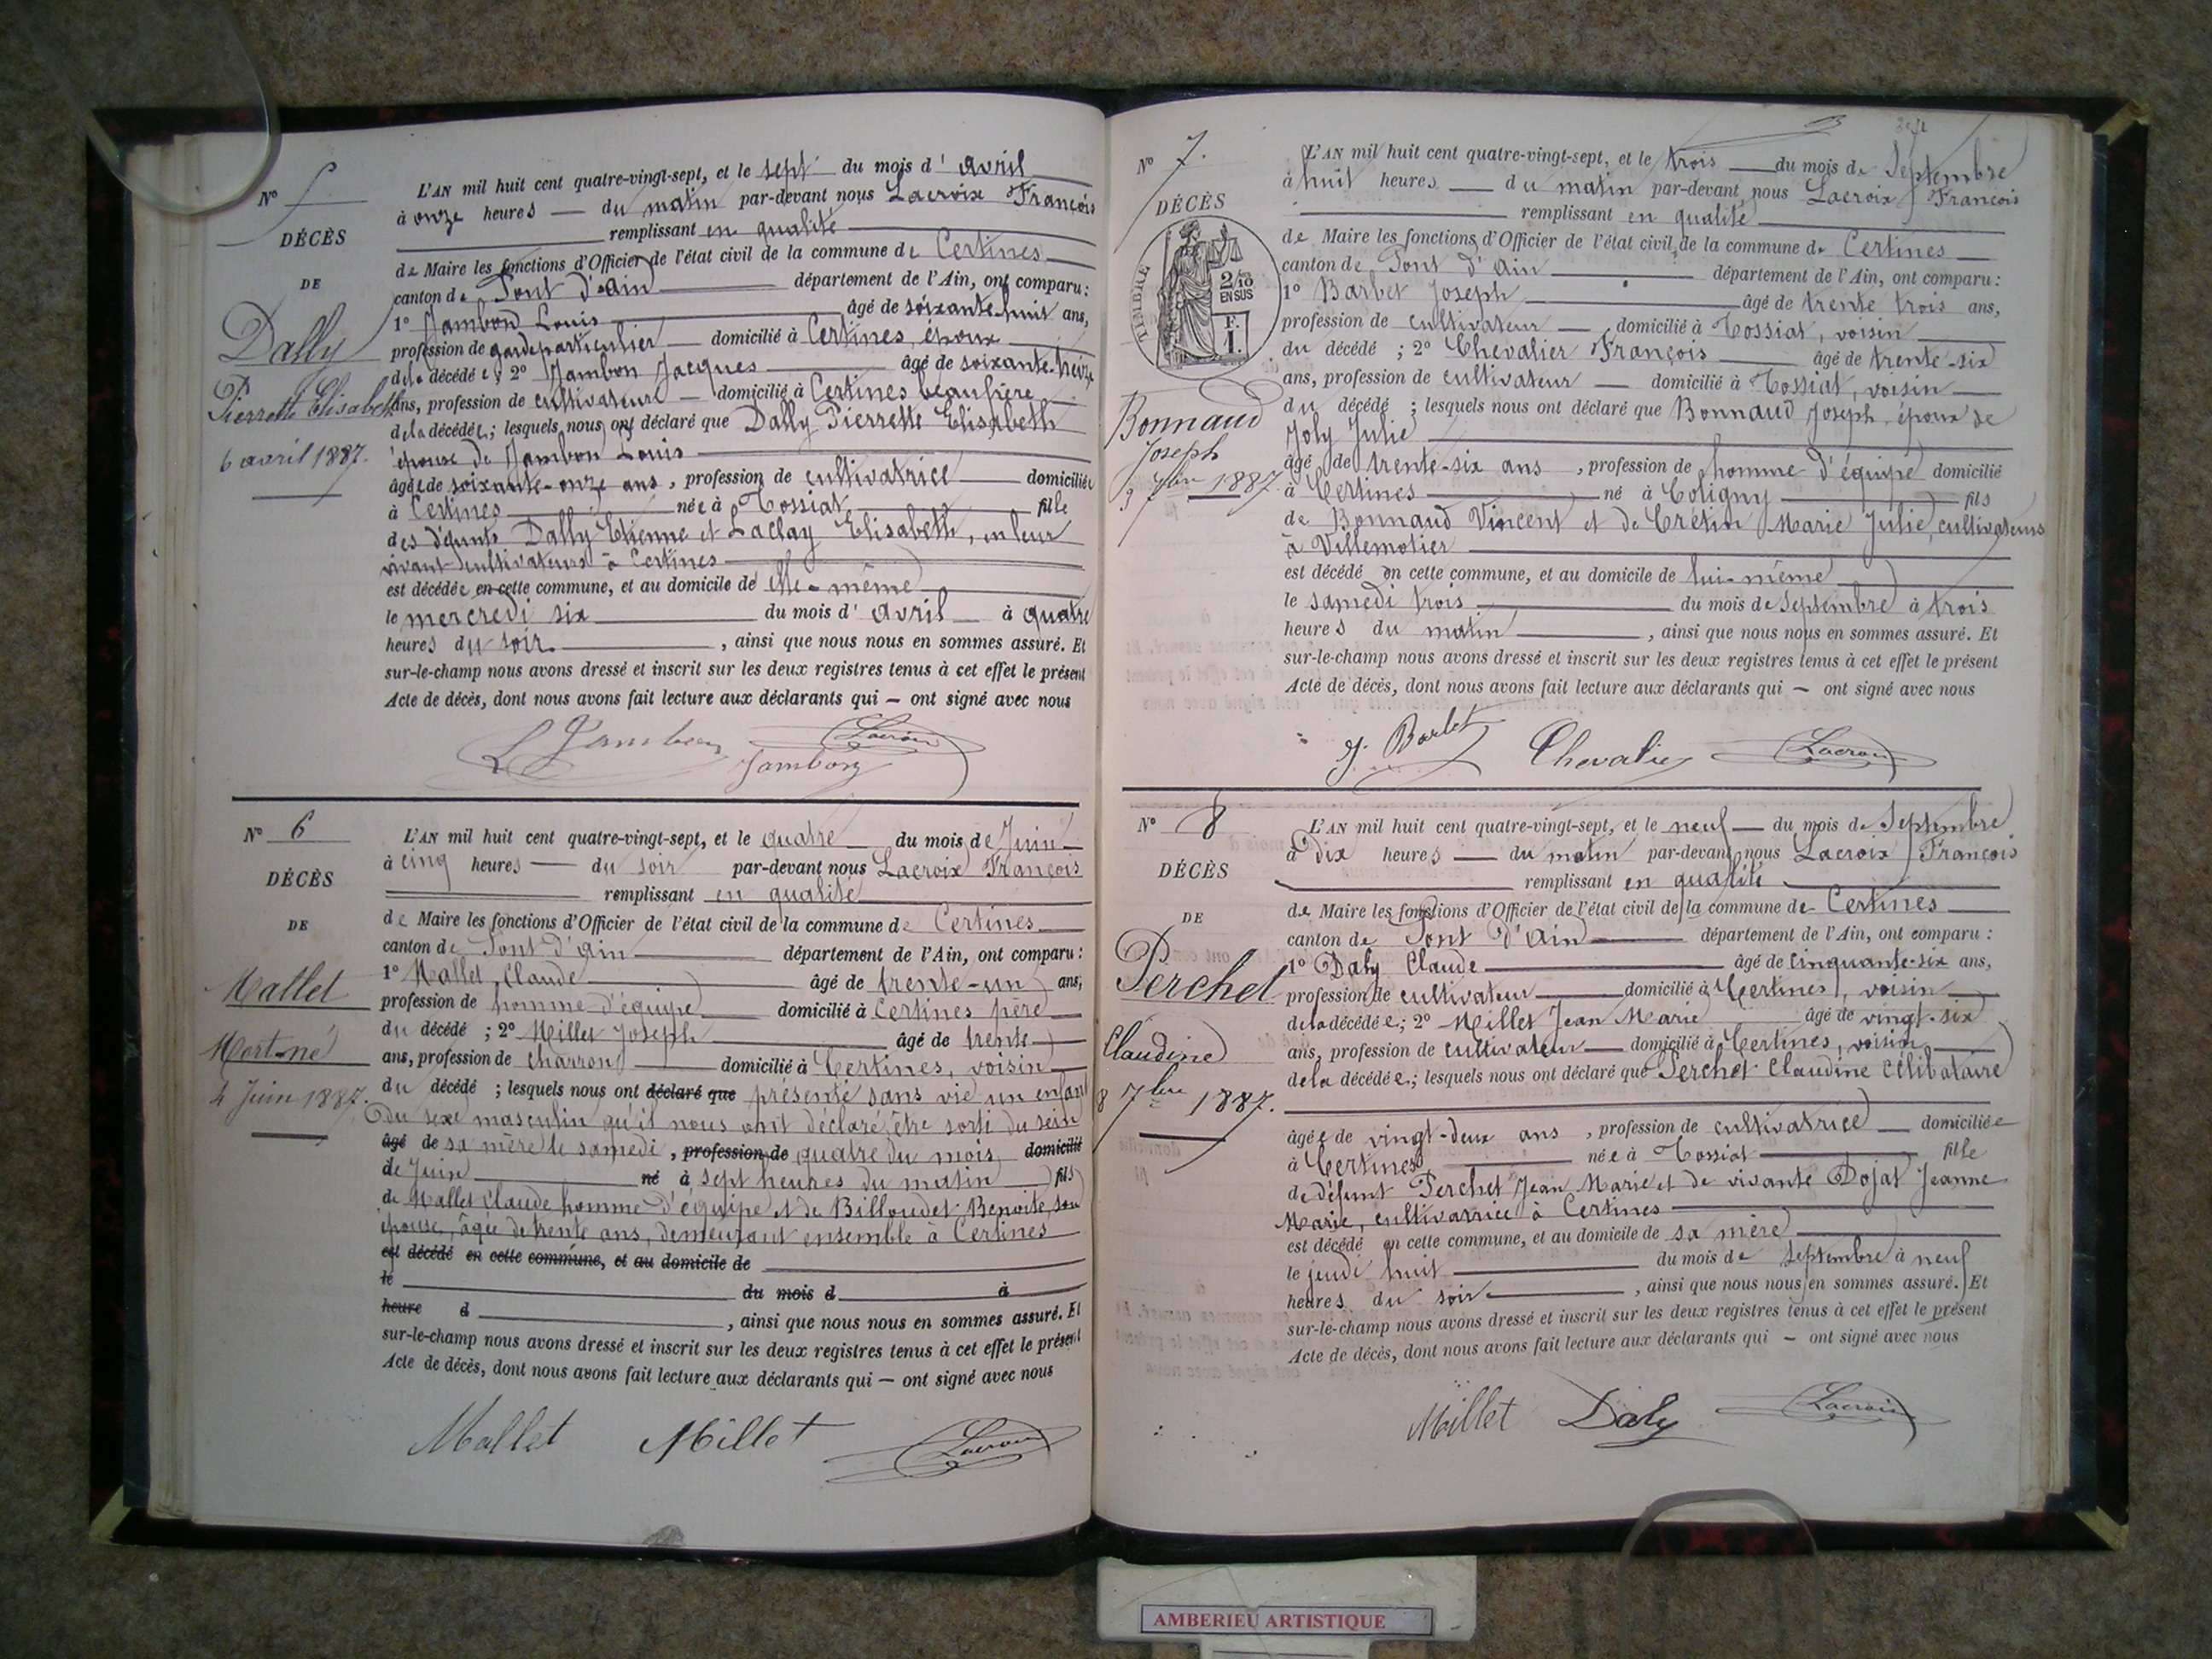 N° 5
DÉCÈS
DE
Dally
Pierrette Elisabeth
6 avril 1887.
L'AN mil huit cent quatre-vingt-sept, et le sept du mois d' avril
à onze heures du matin par-devant nous Lacroix François
remplissant en qualité
de Maire les fonctions d'Officier de l'état civil de la commune de Certines
canton de Pont d'Ain département de l'Ain, ont comparu :
1° Jambon Louis âgé de soixante-huit ans,
profession de garde particulier domicilié à Certines, époux
de la décédée ; 2° Jambon Jacques âgé de soixante-treize
ans, profession de cultivateur domicilié à Certines beaufrère
de la décédée ; lesquels nous ont déclaré que Dally Pierrette Elisabeth
épouse de Jambon Louis
âgée de soixante-onze ans, profession de cultivatrice domiciliée
à Certines née à Tossiat fille
des défunts Dally Etienne et Laclay Elisabeth, en leur
vivant cultivateurs à Certines
est décédée en cette commune, et au domicile de elle-même
le mercredi six du mois d' avril à quatre
heures du soir. , ainsi que nous nous en sommes assuré. Et
sur-le-champ nous avons dressé et inscrit sur les deux registres tenus à cet effet le présent
Acte de décès, dont nous avons fait lecture aux déclarants qui — ont signé avec nous
L Jambon Lacroix
Jambon
N° 6
DÉCÈS
DE
Mallet
Mort-né
4 Juin 1887.
L'AN mil huit cent quatre-vingt-sept, et le quatre du mois de Juin
à cinq heures du soir par-devant nous Lacroix François
remplissant en qualité
de Maire les fonctions d'Officier de l'état civil de la commune de Certines
canton de Pont d'Ain département de l'Ain, ont comparu :
1° Mallet Claude âgé de trente-un ans,
profession de homme d'équipe domicilié à Certines père
du décédé ; 2° Millet Joseph âgé de trente
ans, profession de charron domicilié à Certines, voisin
du décédé ; lesquels nous ont déclaré que présenté sans vie un enfant
du sexe masculin qu'il nous ont déclaré être sorti du sein
âgé de sa mère le samedi , profession de quatre du mois domicilié
de Juin né à sept heures du matin fils
de Mallet Claude homme d'équipe et de Billoudet Benoite, son
épouse, âgée de trente ans, demeurant ensemble à Certines
est décédé en cette commune, et au domicile de
le du mois d à
heure d , ainsi que nous nous en sommes assuré. Et
sur-le-champ nous avons dressé et inscrit sur les deux registres tenus à cet effet le présent
Acte de décès, dont nous avons fait lecture aux déclarants qui — ont signé avec nous
Mallet Millet Lacroix
N° 7.
DÉCÈS
TIMBRE
2/10
EN SUS
F.
1.
Bonnaud
Joseph
3 7bre 1887
L'AN mil huit cent quatre-vingt-sept, et le trois du mois de Septembre
à huit heures du matin par-devant nous Lacroix François
remplissant en qualité
de Maire les fonctions d'Officier de l'état civil de la commune de Certines
canton de Pont d'Ain département de l'Ain, ont comparu :
1° Barbet Joseph âgé de trente trois ans,
profession de cultivateur domicilié à Tossiat, voisin
du décédé ; 2° Chevalier François âgé de trente-six
ans, profession de cultivateur domicilié à Tossiat, voisin
du décédé ; lesquels nous ont déclaré que Bonnaud Joseph époux de
Joly Julie
âgé de trente-six ans , profession de homme d'équipe domicilié
à Certines né à Coligny fils
de Bonnaud Vincent et de Crétin Marie Julie, cultivateurs
à Villemotier
est décédé en cette commune, et au domicile de lui-même
le samedi trois du mois de Septembre à trois
heures du matin , ainsi que nous nous en sommes assuré. Et
sur-le-champ nous avons dressé et inscrit sur les deux registres tenus à cet effet le présent
Acte de décès, dont nous avons fait lecture aux déclarants qui — ont signé avec nous
J. Barbet Chevalier Lacroix
N° 8
DÉCÈS
DE
Perchet
Claudine
8 7bre 1887.
L'AN mil huit cent quatre-vingt-sept, et le neuf du mois de Septembre
à Dix heures du matin par-devant nous Lacroix François
remplissant en qualité
de Maire les fonctions d'Officier de l'état civil de la commune de Certines
canton de Pont d'Ain département de l'Ain, ont comparu :
1° Daly Claude âgé de cinquante-six ans,
profession de cultivateur domicilié à Certines, voisin
de la décédée ; 2° Millet Jean Marie âgé de vingt-six
ans, profession de cultivateur domicilié à Certines, voisin
de la décédée ; lesquels nous ont déclaré que Perchet Claudine célibataire
âgée de vingt-deux ans , profession de cultivatrice domiciliée
à Certines née à Tossiat fille
de défunt Perchet Jean Marie et de vivante Dojat Jeanne
Marie, cultivatrice à Certines
est décédé en cette commune, et au domicile de sa mère
le jeudi huit du mois de Septembre à neuf
heures du soir , ainsi que nous nous en sommes assuré. Et
sur-le-champ nous avons dressé et inscrit sur les deux registres tenus à cet effet le présent
Acte de décès, dont nous avons fait lecture aux déclarants qui — ont signé avec nous
Millet Daly Lacroix
AMBERIEU ARTISTIQUE